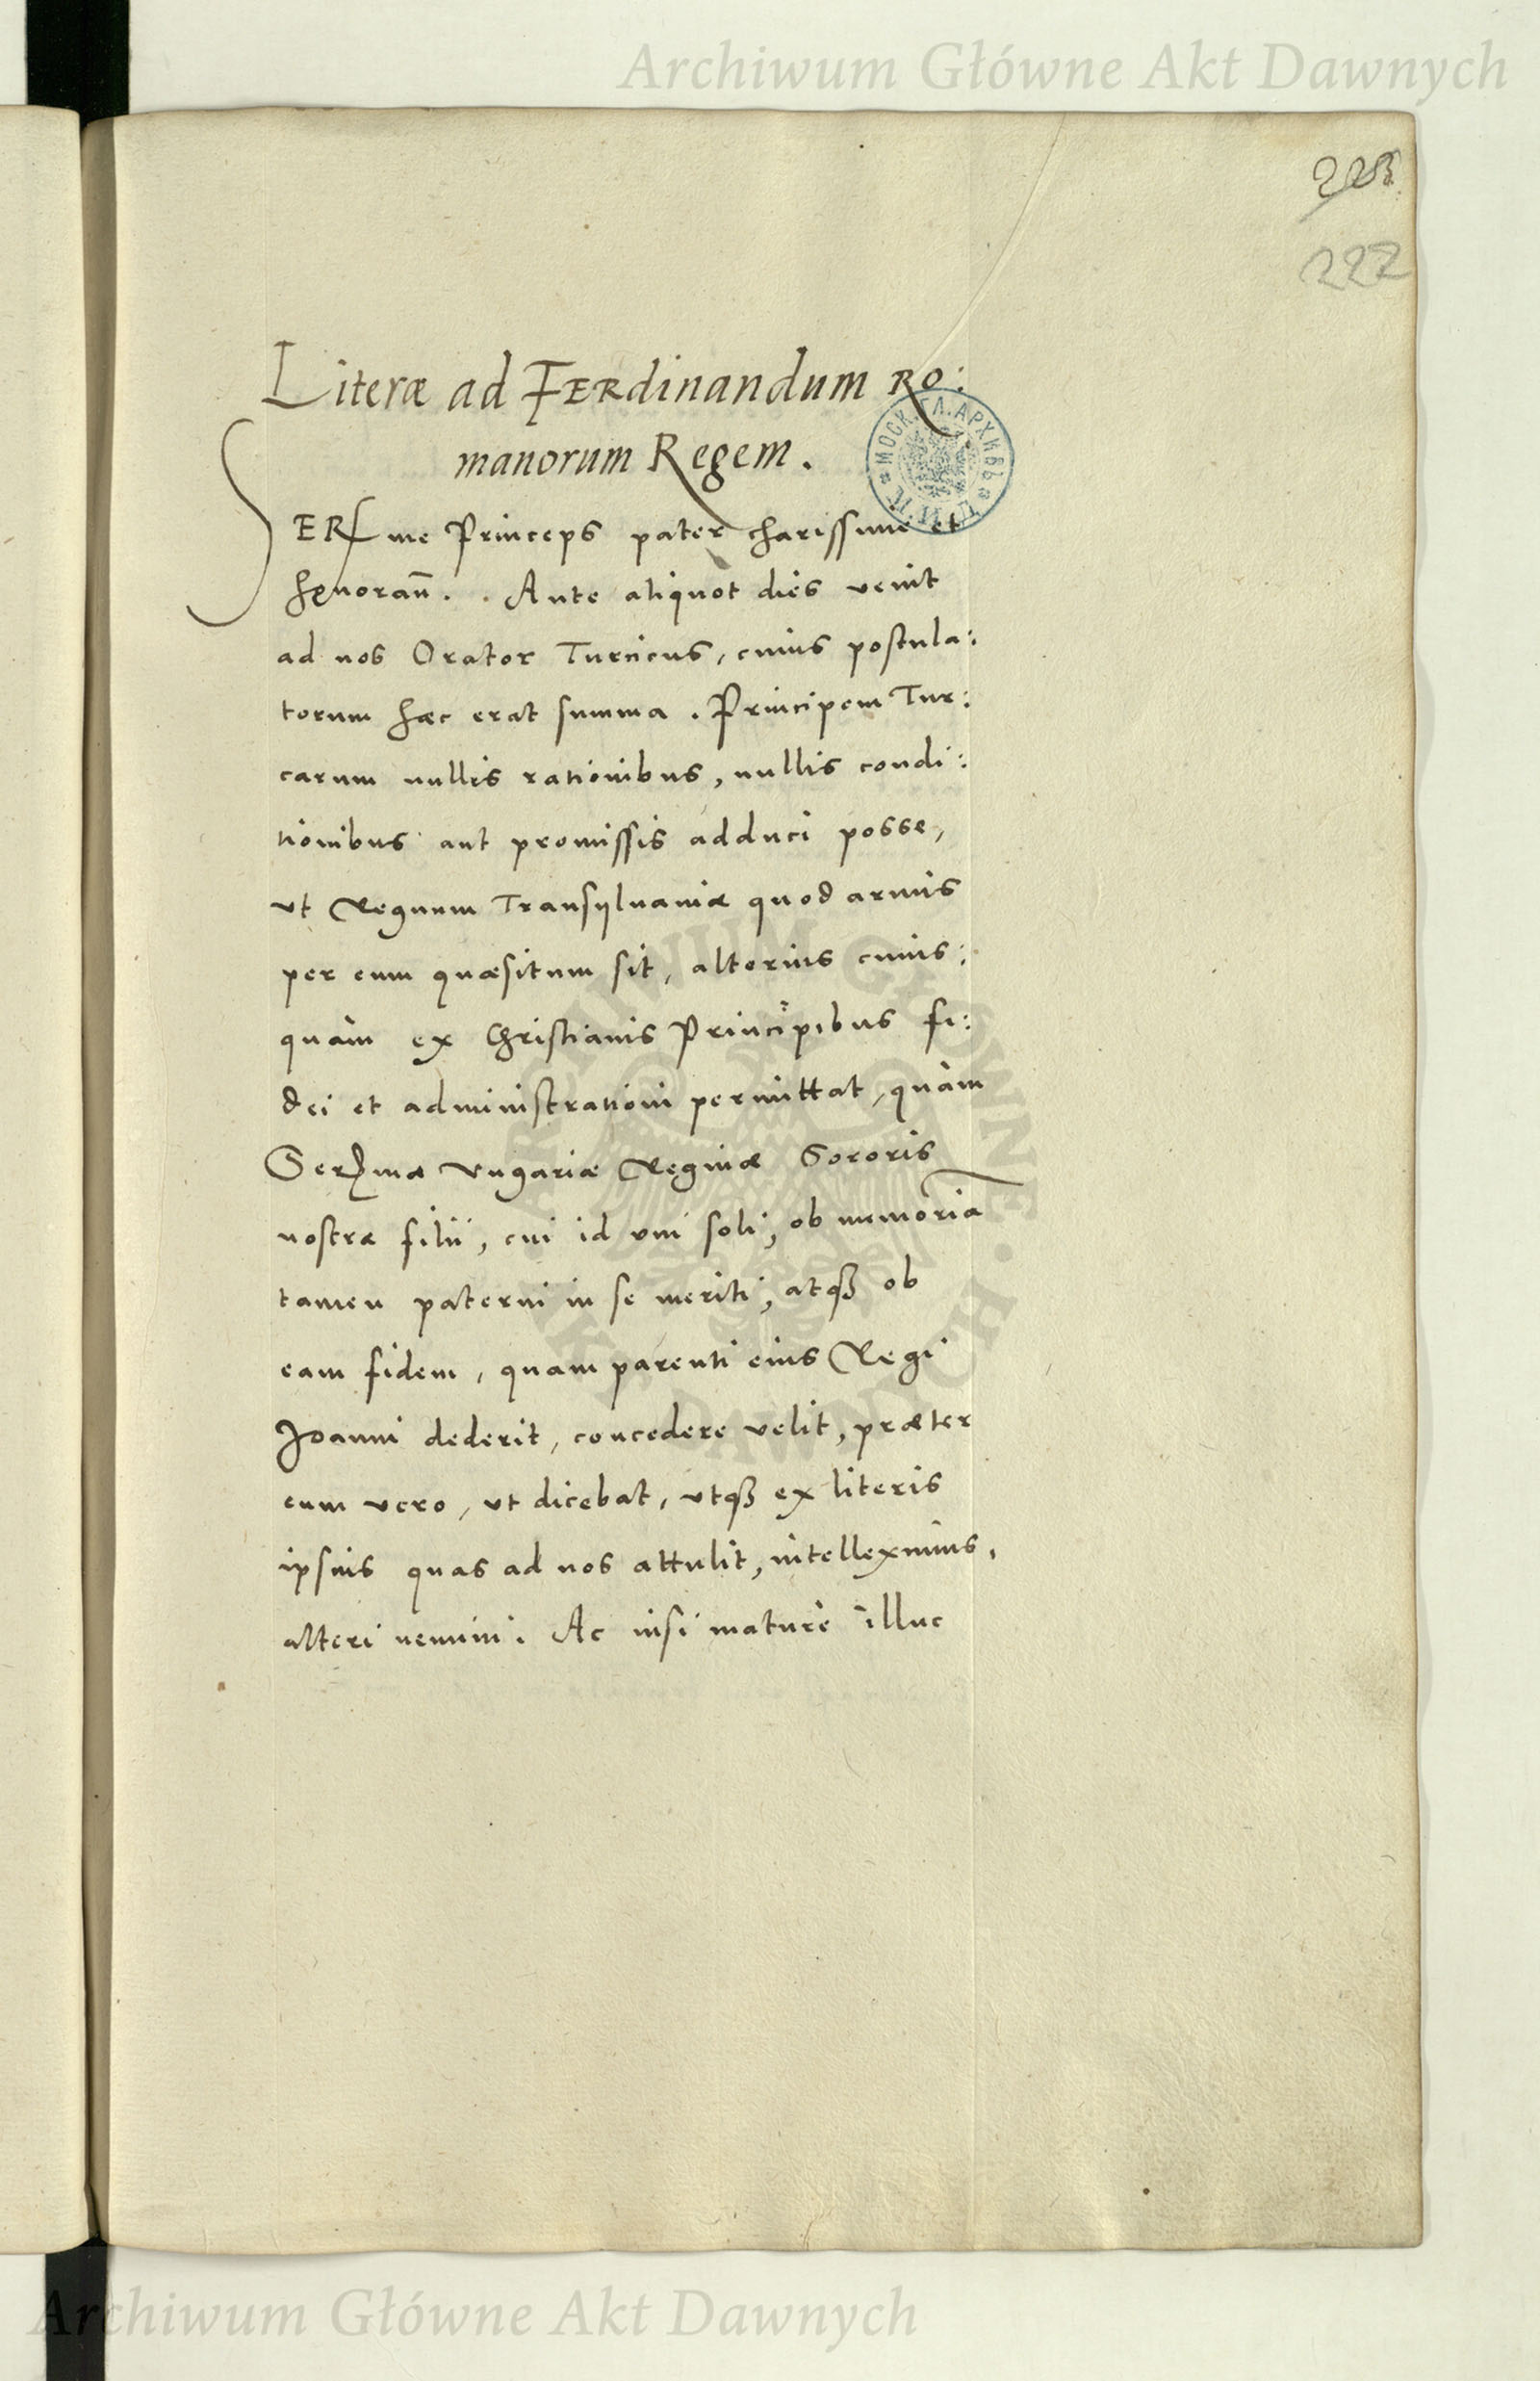 Archiwum Główne Akt Dawnych
223
222
Literæ ad FERdinandum RO:
manorum Regem.
SERme Princeps pater charissime et
honoran̄. Ante aliquot dies venit
ad nos Orator Turcicus, cuius postula:
torum hæc erat summa. Principem Tur:
carum nullis rationibus, nullis condi:
tionibus aut promissis adduci posse,
vt Regnum Transylvaniæ quod armis
per eum quæsitum sit, alterius cuius:
quàm ex Christianis Principibus fi:
dei et administrationi permittat, quàm
Sermæ Vngariæ Reginæ Sororis
nostræ filii, cui id vni soli, ob memoriā
tamen paterni in se meriti, atq₃ ob
eam fidem, quam parenti eius Regi
Joanni dederit, concedere velit, præter
eum vero, vt dicebat, vtq₃ ex literis
ipsius quas ad nos attulit, intelleximus,
alteri nemini. Ac nisi maturè illuc
МОСК. ГЛ. АРХИВЪ
ARCHIWUM GŁÓWNE AKT DAWNYCH
Archiwum Główne Akt Dawnych